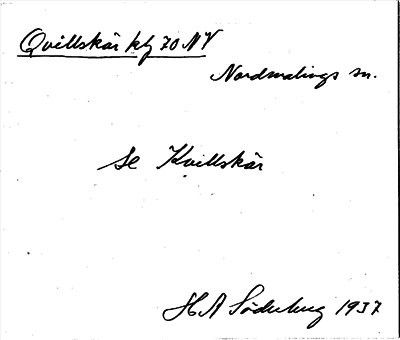 Qvillskär klg 70 NV
Nordmalings sn.
Se Kvillskär
H A Söderberg 1937